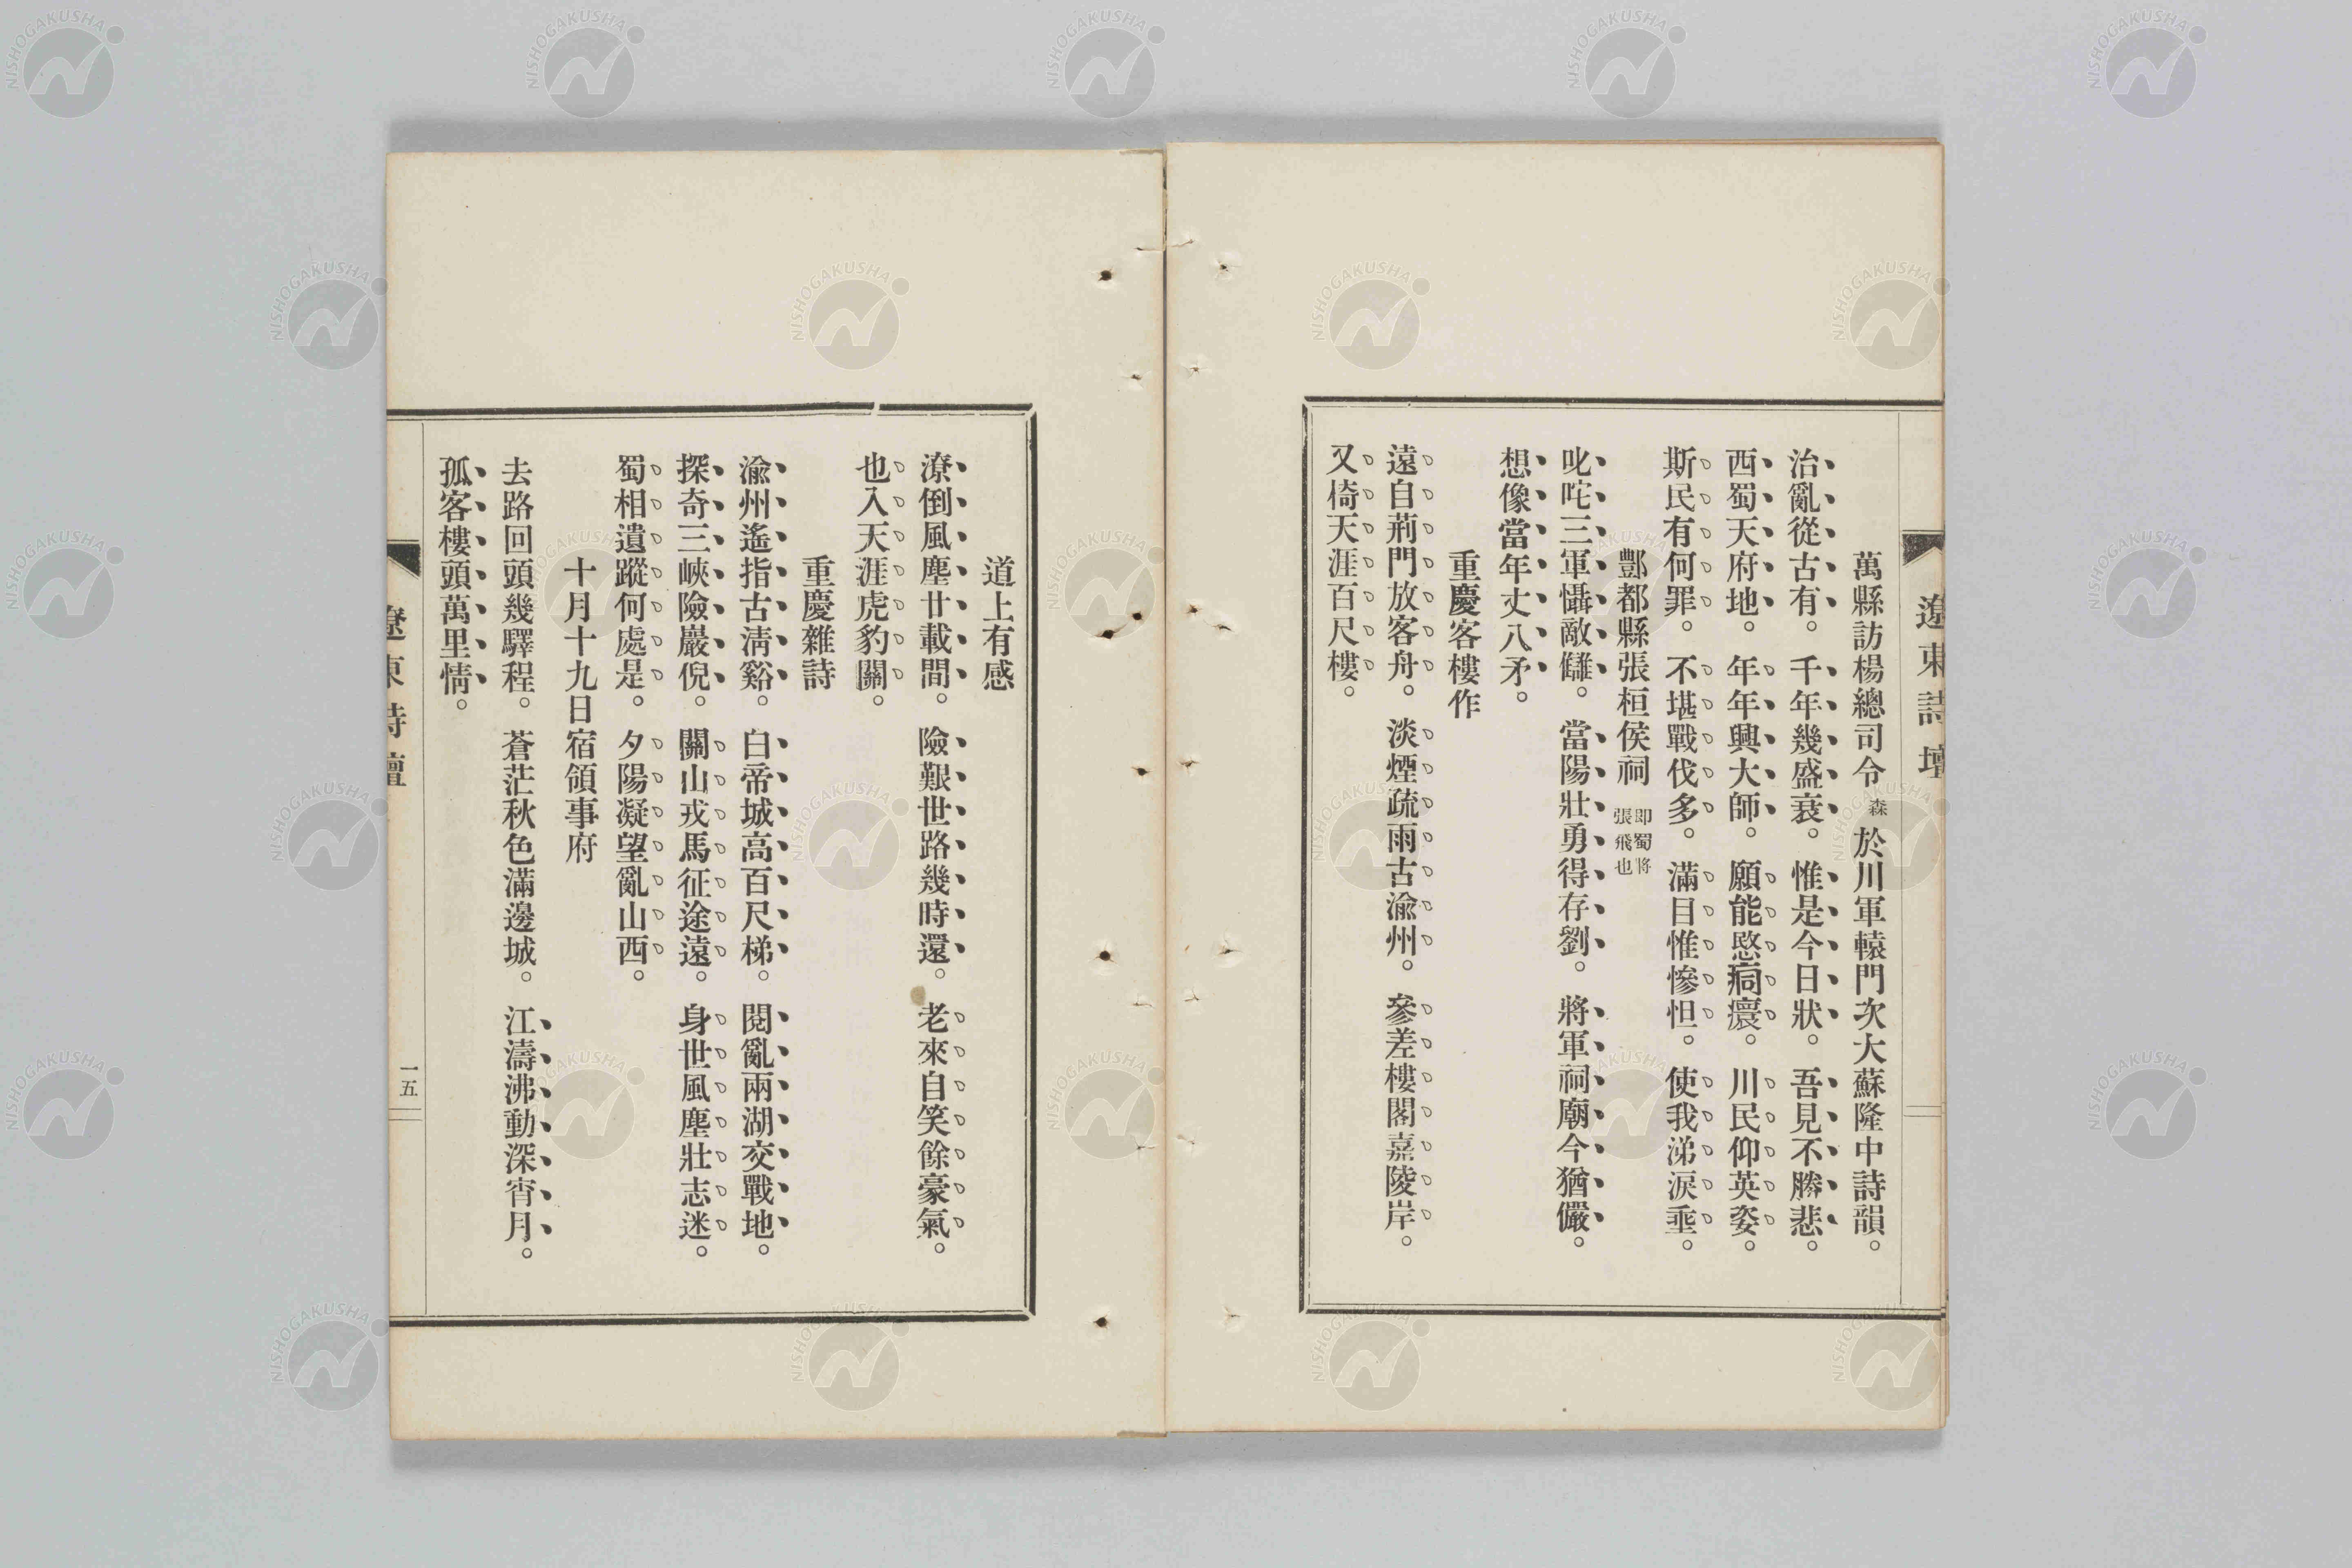 遼東詩壇
萬縣訪楊總司令森於川軍轅門次大蘇隆中詩韻。
治亂從古有。千年幾盛衰。惟是今日狀。吾見不勝悲。
西蜀天府地。年年興大師。願能愍痌瘝。川民仰英姿。
斯民有何罪。不堪戰伐多。滿目惟慘怛。使我涕淚垂。
酆都縣張桓侯祠 即蜀將張飛也
叱咤三軍懾敵讎。當陽壯勇得存劉。將軍祠廟今猶儼。
想像當年丈八矛。
重慶客樓作
遠自荊門放客舟。淡煙疏雨古渝州。參差樓閣嘉陵岸。
又椅天涯百尺樓。
道上有感
潦倒風塵廿載間。險艱世路幾時還。老來自笑餘豪氣。
也入天涯虎豹關。
重慶雜詩
渝州遙指古淸谿。白帝城高百尺梯。閱亂兩湖交戰地。
探奇三峽險巖倪。關山戎馬征途遠。身世風塵壯志迷。
蜀相遺蹤何處是。夕陽凝望亂山西。
十月十九日宿領事府
去路回頭幾驛程。蒼茫秋色滿邊城。江濤沸動深宵月。
孤客樓頭萬里情。
遼東詩壇
一五
NISHOGAKUSHA